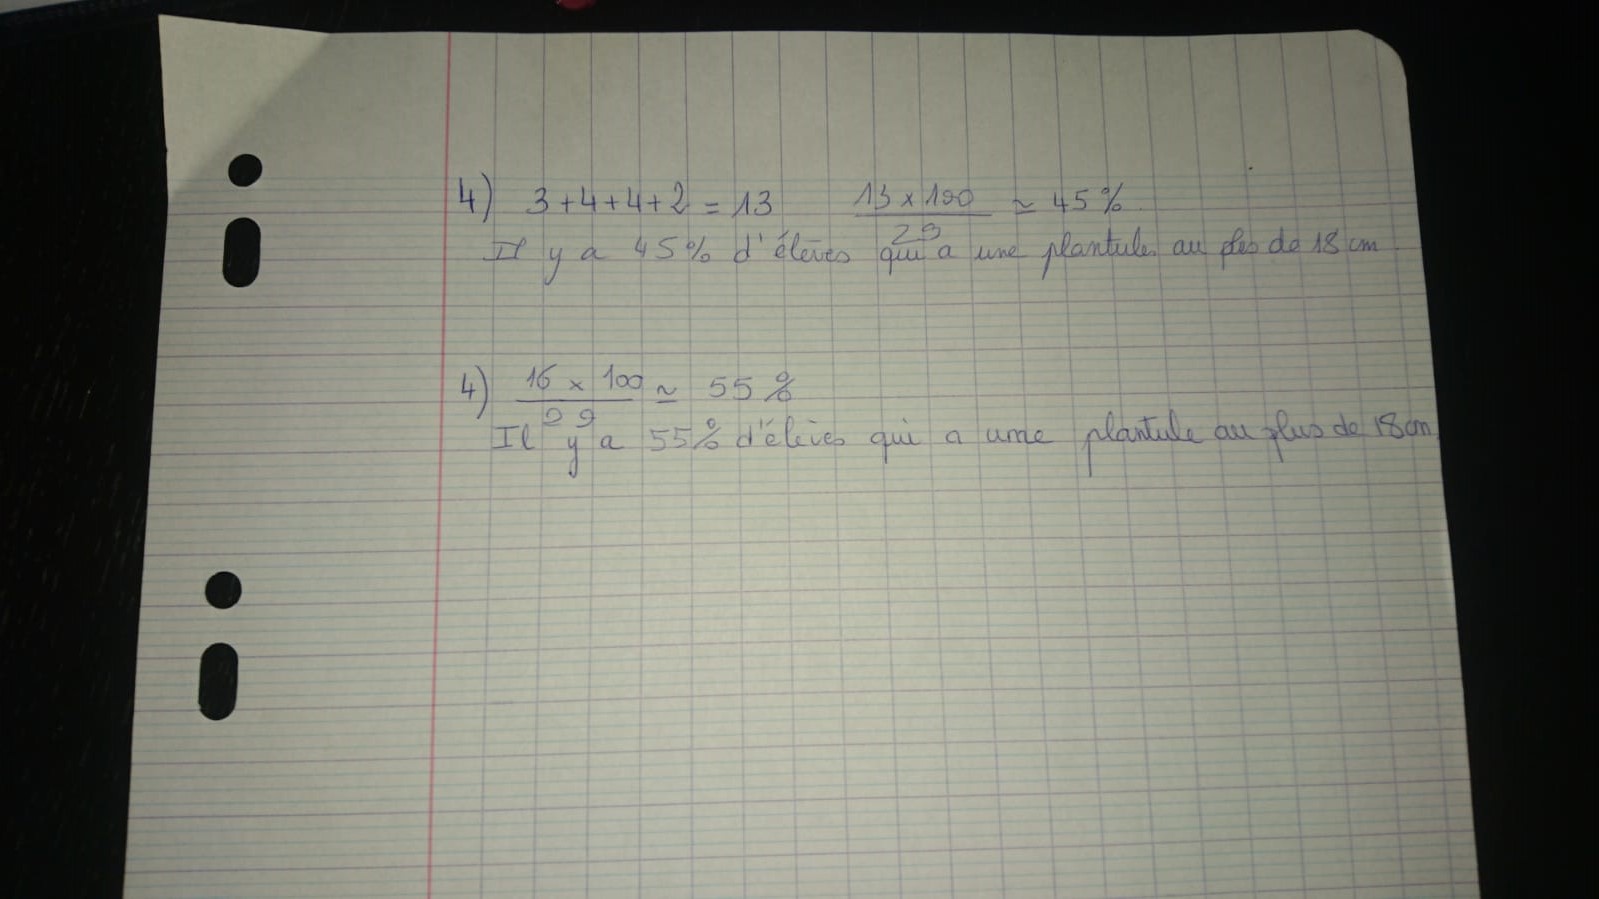 4) 3+4+4+2 = 13 13 x 100 / 29 ≃ 45%
Il y a 45% d'élèves qui a une plantule au plus de 18 cm
4) 16 x 100 / 29 ≃ 55%
Il y a 55% d'élèves qui a une plantule au plus de 18 cm